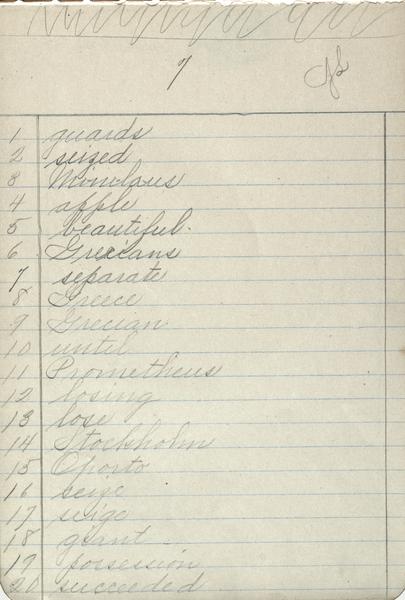 7
1 guards
2 seized
3 Minclaus
4 apple
5 beautiful.
6 Grecians
7 separate
8 Greece
9 Grecian
10 until
11 Prometheus
12 losing
13 lose
14 Stockholm
15 Oporto
16 seize
17 seige
18 giant
19 possession
20 succeeded